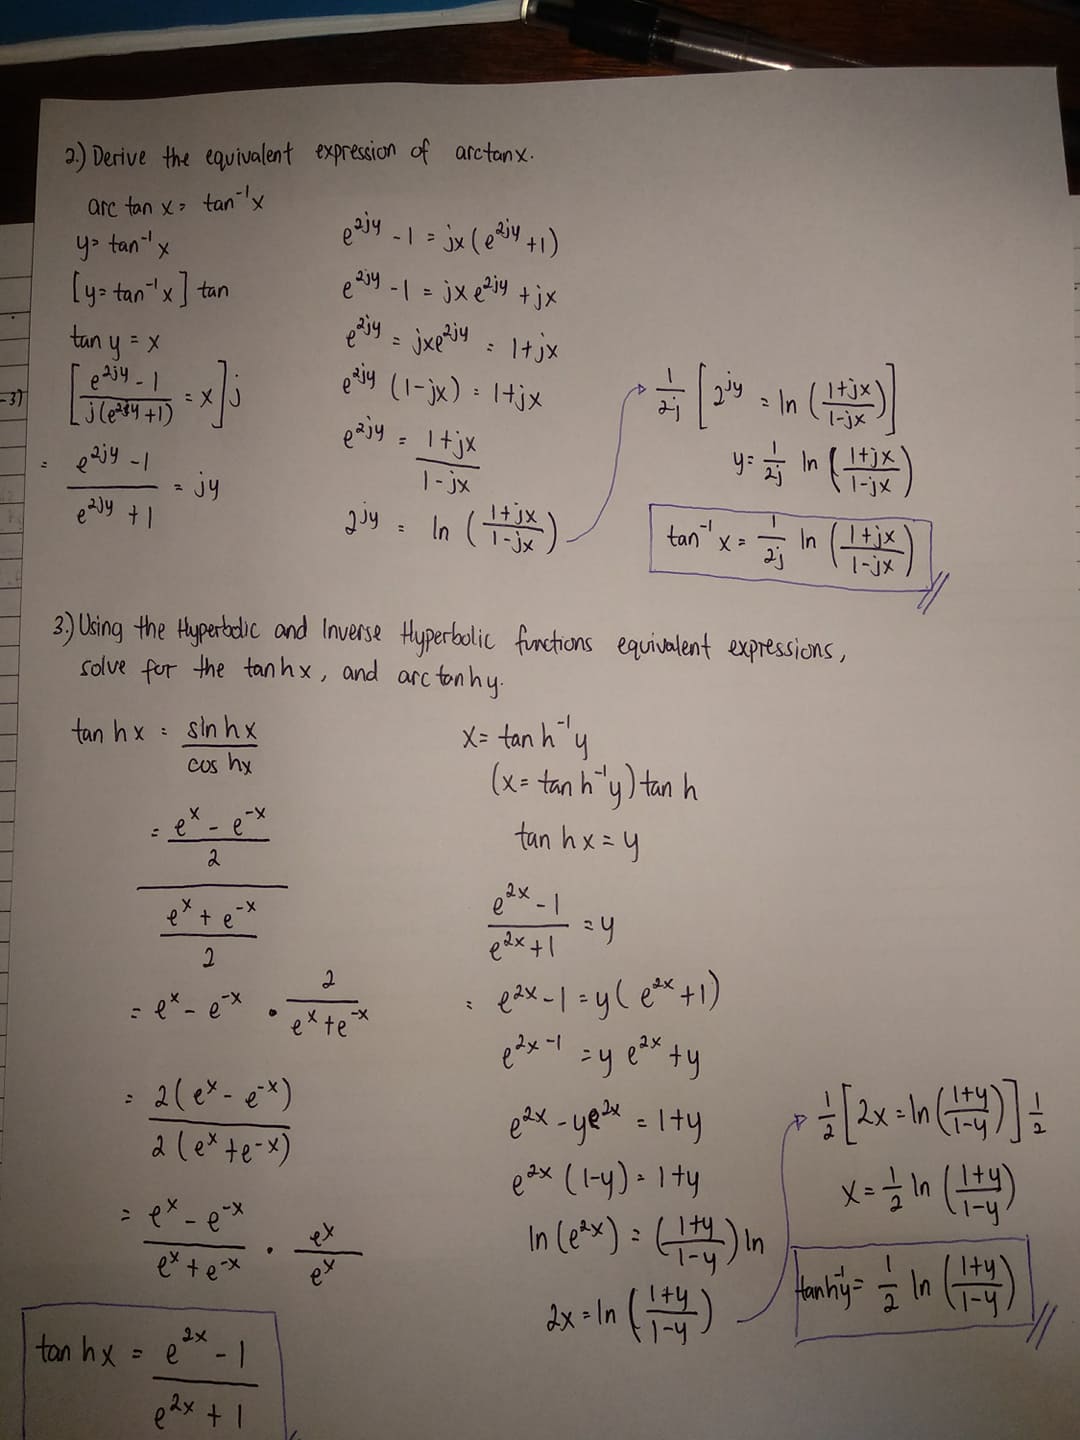 2.) Derive the equivalent expression of arctanx.
arc tan x = tan⁻¹x
y= tan⁻¹ x
[y= tan⁻¹x] tan
tan y = x
[(e^2jy - 1)/(j(e^2jy +1)) = x] j
= (e^2jy -1)/(e^2jy +1) = jy
e^2jy -1 = jx (e^2jy +1)
e^2jy -1 = jx e^2jy + jx
e^2jy = jxe^2jy = 1+jx
e^2jy (1-jx) = 1+jx
e^2jy = (1+jx)/(1-jx)
2^jy = ln ((1+jx)/(1-jx))
1/2j [2^jy = ln ((1+jx)/(1-jx))]
y= 1/2j ln ((1+jx)/(1-jx))
tan⁻¹ x = 1/2j ln ((1+jx)/(1-jx))
3.) Using the Hyperbolic and Inverse Hyperbolic functions equivalent expressions,
solve for the tan hx, and arc tan hy.
tan hx = (sin hx)/(cos hx)
= ((e^x - e^-x)/2)/((e^x + e^-x)/2)
= e^x - e^-x • 2/(e^x +e^-x)
= (2(e^x - e^-x))/(2(e^x +e^-x))
= (e^x - e^-x)/(e^x + e^-x) • e^x/e^x
tan hx = (e^2x - 1)/(e^2x + 1)
x= tan h⁻¹y
(x= tan h⁻¹y) tan h
tan hx = y
(e^2x -1)/(e^2x +1) = y
= e^2x -1 = y( e^2x +1)
e^2x -1 = y e^2x + y
e^2x - ye^2x = 1+y
e^2x (1-y) = 1+y
ln (e^2x) = ((1+y)/(1-y)) ln
2x = ln ((1+y)/(1-y))
1/2 [2x = ln ((1+y)/(1-y))] 1/2
x = 1/2 ln ((1+y)/(1-y))
tanh⁻¹y = 1/2 ln ((1+y)/(1-y))